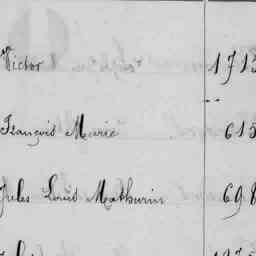 Victor 1713
François Marie 615
Jules Louis Mathurin 698